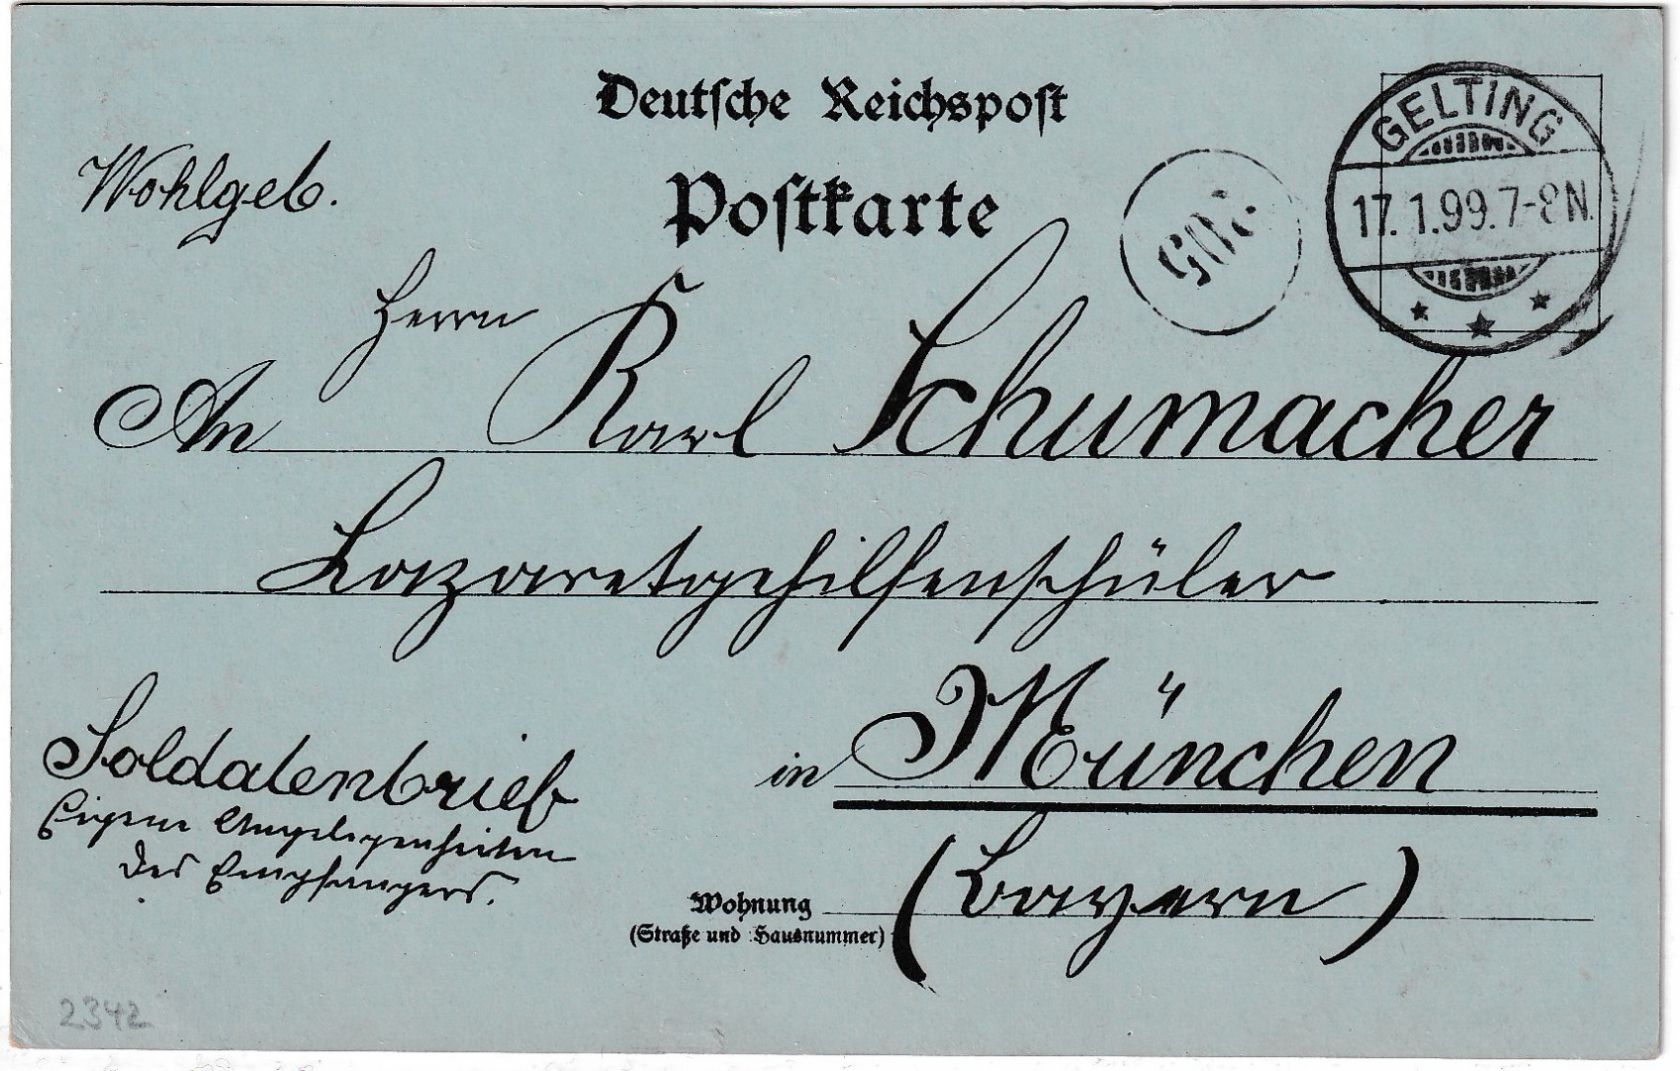 Deutsche Reichspost
Postkarte
GELTING
17. 1.99.7-8N.
205
Wohlgeb.
Herrn
An Karl Schumacher
Lazaretgehilfenschüler
in München
(Bayern)
Soldatenbrief
Eigene Angelegenheiten
des Empfängers.
Wohnung
(Straße und Hausnummer)
2342